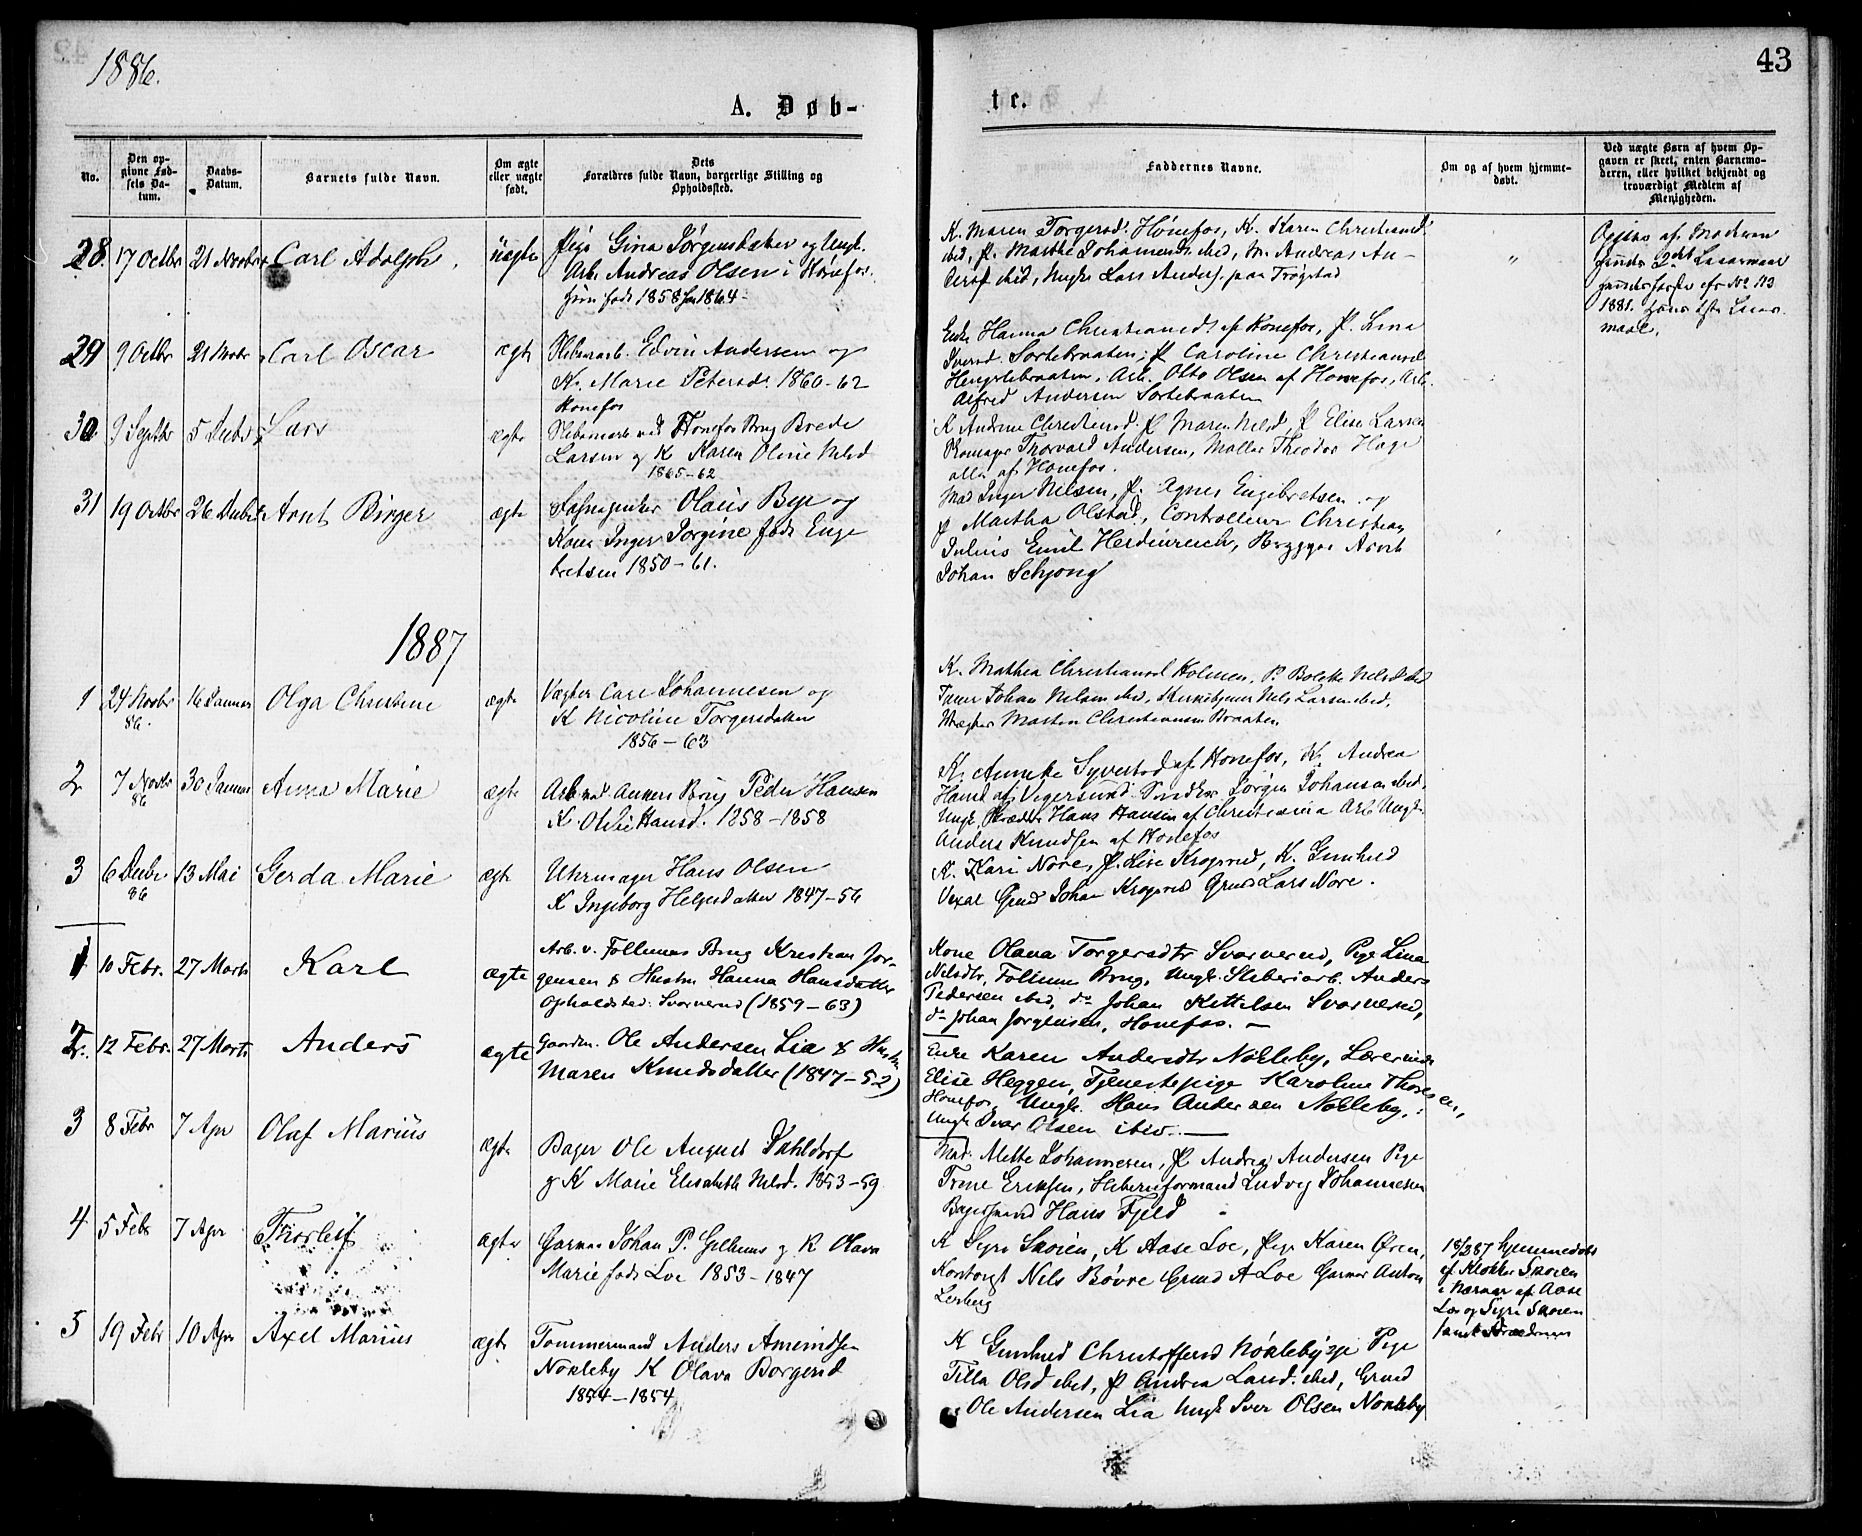 1886.
43
A. Døb-
te.
No.
Den op-
givne Fød-
sels Da-
tum.
Daabs-
Datum.
Barnets fulde Navn.
Om ægte
eller uægte
født.
Dets
Forældres fulde Navn, borgerlige Stilling og
Opholdssted.
Faddernes Navne.
Om og af hvem hjemme-
døbt.
Ved uægte Børn af hvem Op-
gaven er skeet, enten Barnemo-
deren, eller hvilket bekjendt og
troværdigt Medlem af
Menigheden.
28. 17 Octbr 21 Novbr Carl Adolph. uægte Pige Gina Jørgensdatter og Ungk.
Arb. Andreas Olsen i Hønefos.
hun født 1858 han 1864-
K. Maren Torgersd. Hønefos, K. Karen Christiansd.
ibid, P. Marthe Johannesd. ibid, M. Andreas An-
ders. ibid, Ungk. Lars Anders. paa Trøgstad
"
Opgivet af Moderen
hendes 2det Leiermaal
No 113
1881. hans 1ste Leier-
maal.
29 9 Octbr 21 Novbr Carl Oscar ægte Sliberiarb. Edvin Andersen og
K. Marie Petersd. 1860-62
Hønefos
Enke Hanna Christiansd. af Hønefos, P. Lina
Iversd. Sortebraaten, P Caroline Christiansd
Hengslebraaten, Arb. Otto Olsen af Hønefos, Arb.
Alfred Andersen Sortebraaten
30. 9 Septbr 5 Decbr Lars ægte Slibemarb ved Hønefos Brug Brede
Larsen og K Karen Oline Nilsd
1865-62
K Andrine Christiansd. P Maren Nilsd, P Elise Larsen
Skomager Thorvald Andersen, Møller Theodor Hage
alle af Hønefos.
31 19 Octbr 26 Decbr Arnt Birger ægte Olaus Bye og
Kone Inger Jorgine født Enge
bretsen 1850-61.
Mad Inger Nilsen, P. Agnes Engebretsen og
P Martha Olstad, Controlleur Christian
Julius Emil Heidenreich, Brygger Arnt
Johan Schjong
1887
1 24 Novbr
86. 16 Januar Olga Christine ægte Vægter Carl Johannesen og
K Nicoline Torgersdatter
1856-63
K. Mathea Christiansd Holmen, P. Bolette Nilsd ibid
Johan Nilsen ibid, Nils Larsen ibid,
Vægter Morten Christiansen Braaten.
2 7 Novbr
86 30 Januar Anna Marie ægte Arb ved Ankers Brug Peder Hansen
K. Olise Hansd. 1858-1858
K. Anneke Syvertsd af Hønefos, K. Andrea
Hansd af Vegersund. Snedker Jørgen Johansen ibid,
Ungk. Skrædder Hans Hansen af Christiania Arb Ungk.
Anders Knudsen af Hønefos
3 6 Decbr
86 13 Mai Gerda Marie ægte Uhrmager Hans Olsen
K Ingeborg Helgesdatter 1847-56
K. Kari Nore, P. Lise Krogsrud, K. Gunhild
Vexal Gmd Johan Krogsrud Grmd Lars Nore.
1 10 Febr. 27 Marts Karl ægte Arb. v. Follums Brug Kristian Jør-
gensen & Hustru Hanna Hansdatter
Opholdsted: Svarverud (1859-63)
Kone Olava Torgersdtr Svarverud, Pige Lina
Nilsdtr, Follum Brug, Ungk. Sliberiarb. Anders
Pedersen ibid, do Johan Kittelsen Svarverud,
do Johan Jørgensen, Hønefos.-
2. 12 Febr. 27 Marts Anders ægte Gaardm. Ole Andersen Lia & Hustru
Maren Knudsdatter (1847-52)
Enke Karen Andersdtr Nökleby, Lærerinde
Elise Heggen, Tjenestepige Karoline Thoresen,
Hønefos, Ungk. Hans Andersen Nökleby,
Ungk Iver Olsen ibid.-
3 8 Febr 7 Apr Olaf Marius ægte Bager Ole August Dahldorf
og K Marie Elisabeth Nilsd. 1853-59
Mad. Mette Johannesen, P Andrea Andersen Pige
Trine Eriksen, Sliberiformand Ludvig Johannesen
Bagersvend Hans Fjeld
4 5 Febr 7 Apr Thorleif ægte Garver Johan P. Gulhus og K Olava
Marie født Loe 1853-1847
K Sigri Skoien, K Aase Loe, Pige Karen Øren,
Kontorist Nils Bøvre Grmd A Loe Garver Anton
Lerberg
18/2 87 hjemmedøbt
af Klokker Skoien
i Nærvær af Aase
Loe og Sigri Skoien
samt Forældrene
5 19 Febr 10 Apr Axel Marius ægte Tømmermand Anders Amundsen
Nökleby K Olava Borgersd
1854-1854
K Gunhild Christoffersd Nøkleby Pige
Tilla Olsd ibid, P Andrea Larsd. ibid, Grmd
Ole Andersen Lia Ungk Iver Olsen Nökleby